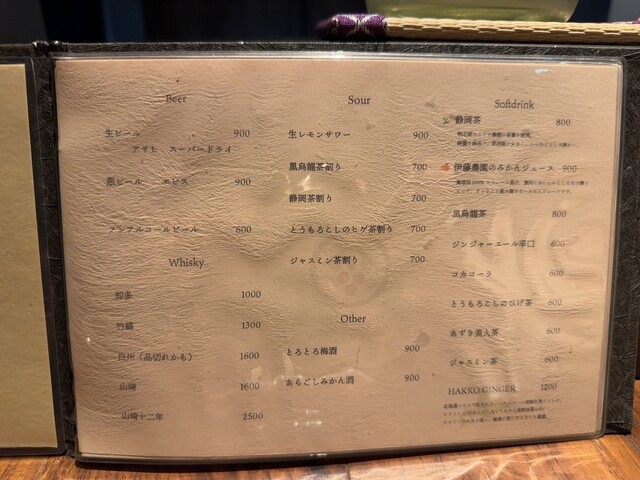 Beer
生ビール 900
アサヒ スーパードライ
瓶ビール エビス 900
ノンアルコールビール 600
Whisky
知多 1000
竹鶴 1300
白州（品切れかも） 1600
山崎 1600
山崎十二年 2500
Sour
生レモンサワー 900
黒烏龍茶割り 700
静岡茶割り 700
とうもろこしのヒゲ茶割り 700
ジャスミン茶割り 700
Other
とろとろ梅酒 900
あらごしみかん酒 900
Softdrink
静岡茶 800
伊藤農園のみかんジュース 900
黒烏龍茶 800
ジンジャーエール辛口 600
コカコーラ 600
とうもろこしのひげ茶 600
あずき美人茶 600
ジャスミン茶 600
HAKKO GINGER 1200